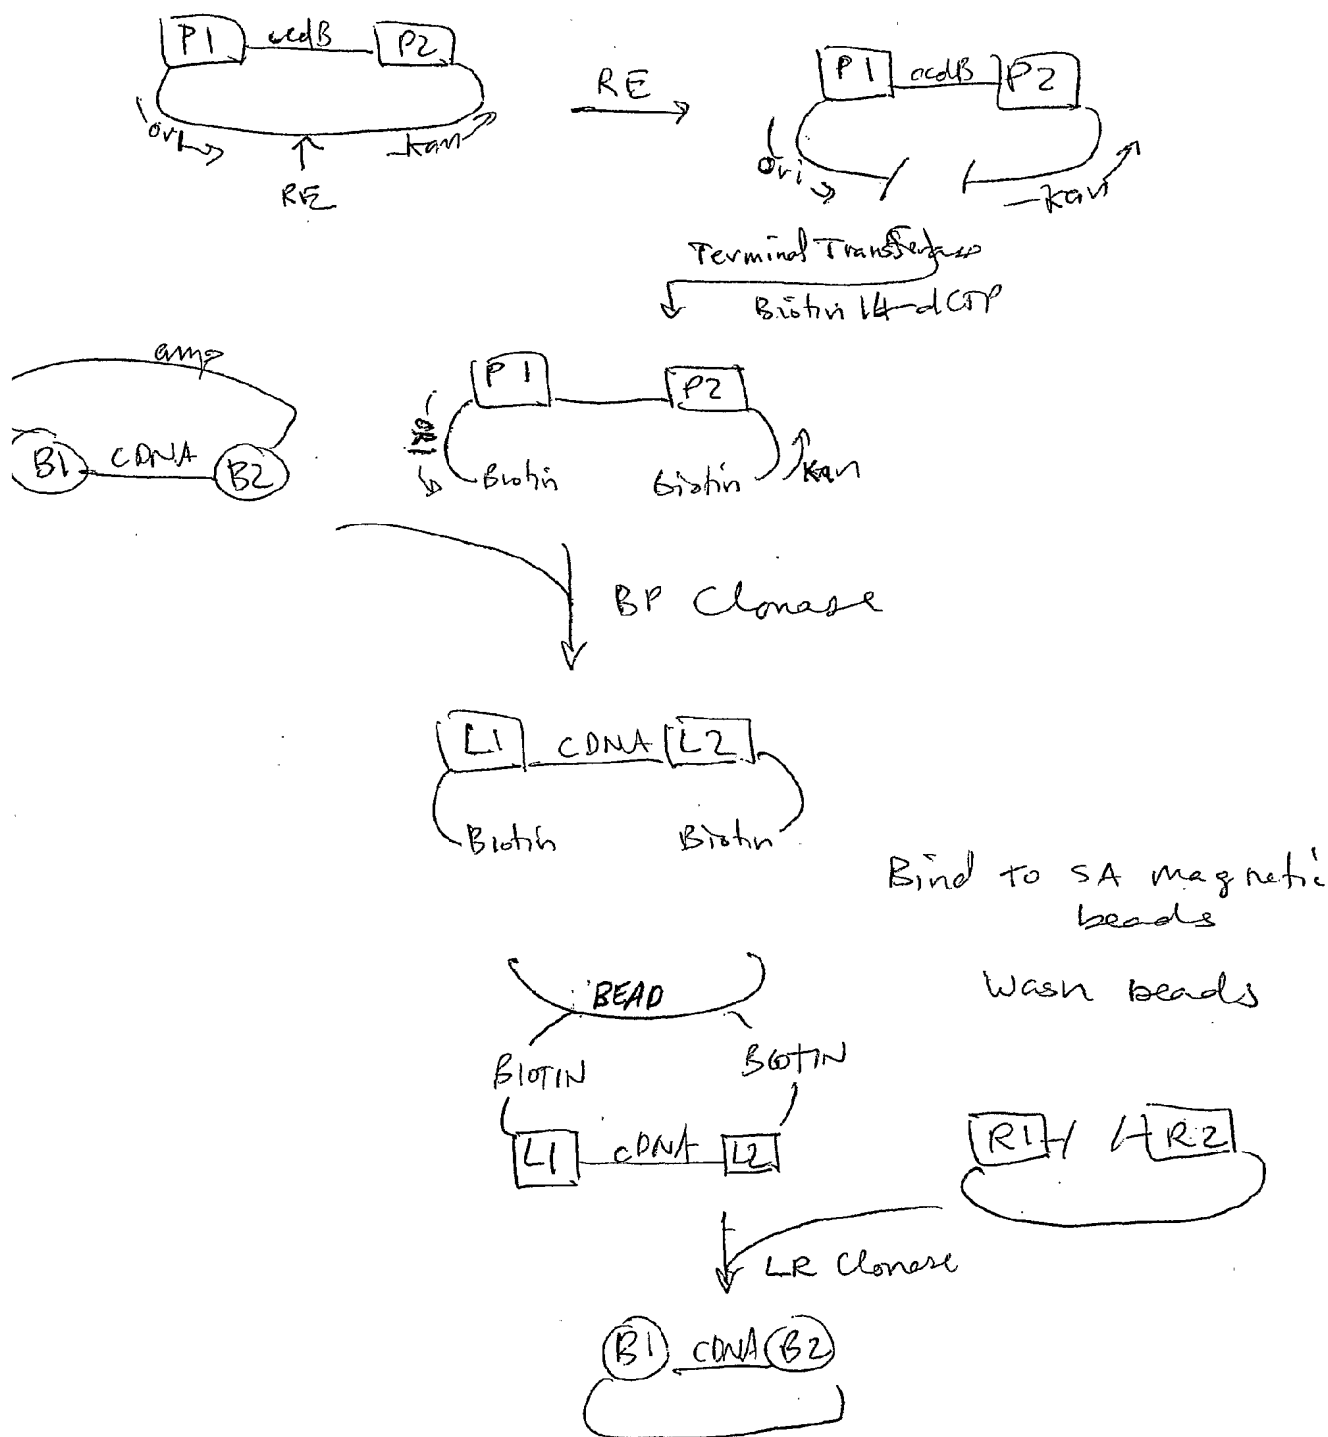 P1 ccdB P2
ori
RE
Kan
RE
P1 ccdB P2
Ori
Kan
Terminal Transferase
Biotin 14-dCTP
amp
B1 CDNA B2
P1 P2
ORI
Biotin Biotin
Kan
BP Clonase
L1 CDNA L2
Biotin Biotin
Bind to SA magnetic
beads
Wash beads
BEAD
BIOTIN BIOTIN
L1 cDNA L2
R1 R2
LR Clonase
B1 CDNA B2